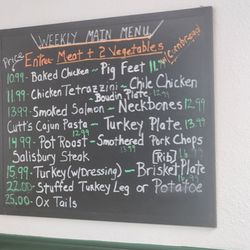 WEEKLY MAIN MENU
Price Entree- Meat + 2 Vegetables (Cornbread)
10.99- Baked Chicken ~ Pig Feet 11.99
11.99- Chicken Tetrazzini ~ Chile Chicken
Boudin Plate 12.99
13.99- Smoked Salmon ~ Neckbones 12.99
Cutt's Cajun Pasta ~ Turkey Plate 13.99
14.99 Pot Roast ~ Smothered Pork Chops
Salisbury Steak [Rib]
15.99- Turkey (w/Dressing) ~ Brisket Plate
22.00- Stuffed Turkey Leg or Potatoe
25.00- Ox Tails